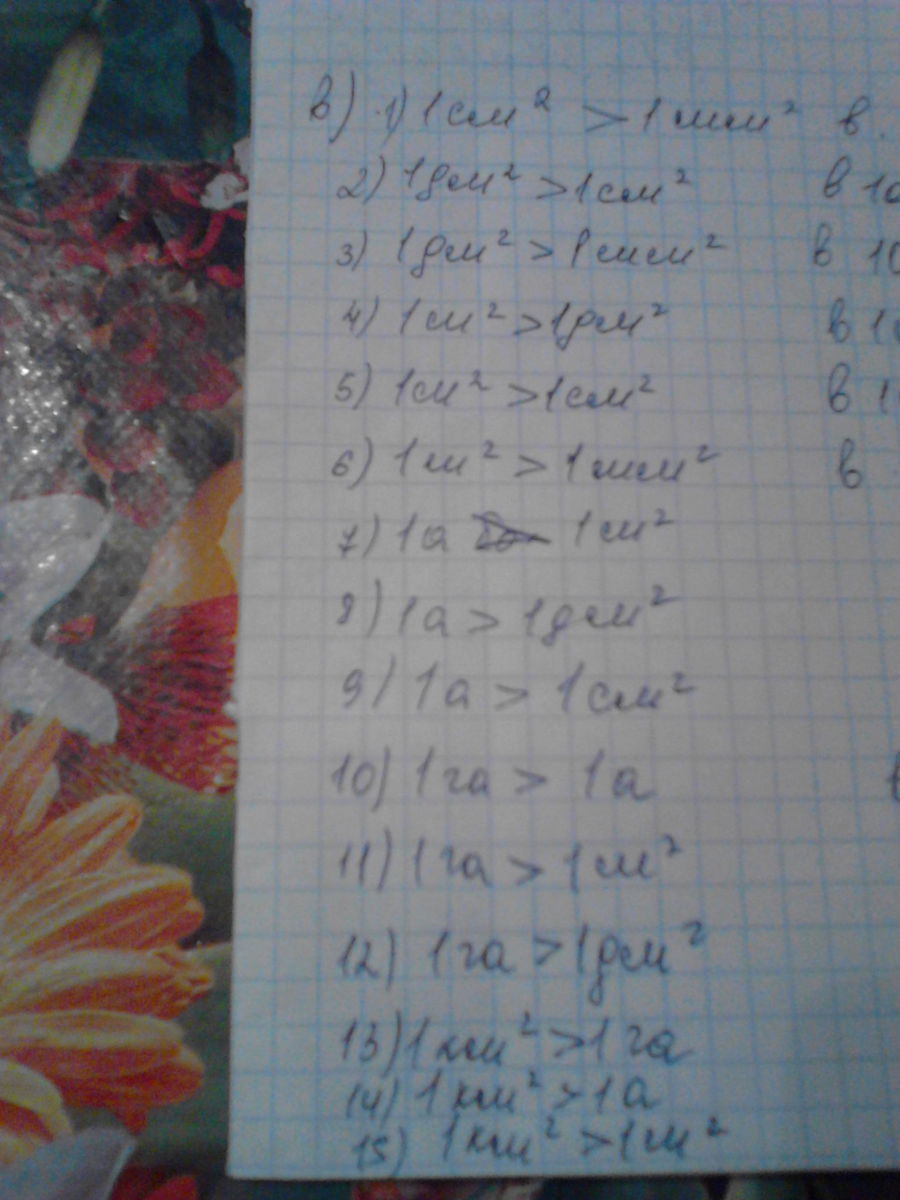 в) 1) 1 см² > 1 мм² в
2) 1 дм² > 1 см² в 10
3) 1 дм² > 1 мм² в 10
4) 1 м² > 1 дм² в 1
5) 1 м² > 1 см² в 1
6) 1 м² > 1 мм² в
7) 1 а 1 м²
8) 1 а > 1 дм²
9) 1 а > 1 см²
10) 1 га > 1 а
11) 1 га > 1 м²
12) 1 га > 1 дм²
13) 1 км² > 1 га
14) 1 км² > 1 а
15) 1 км² > 1 м²